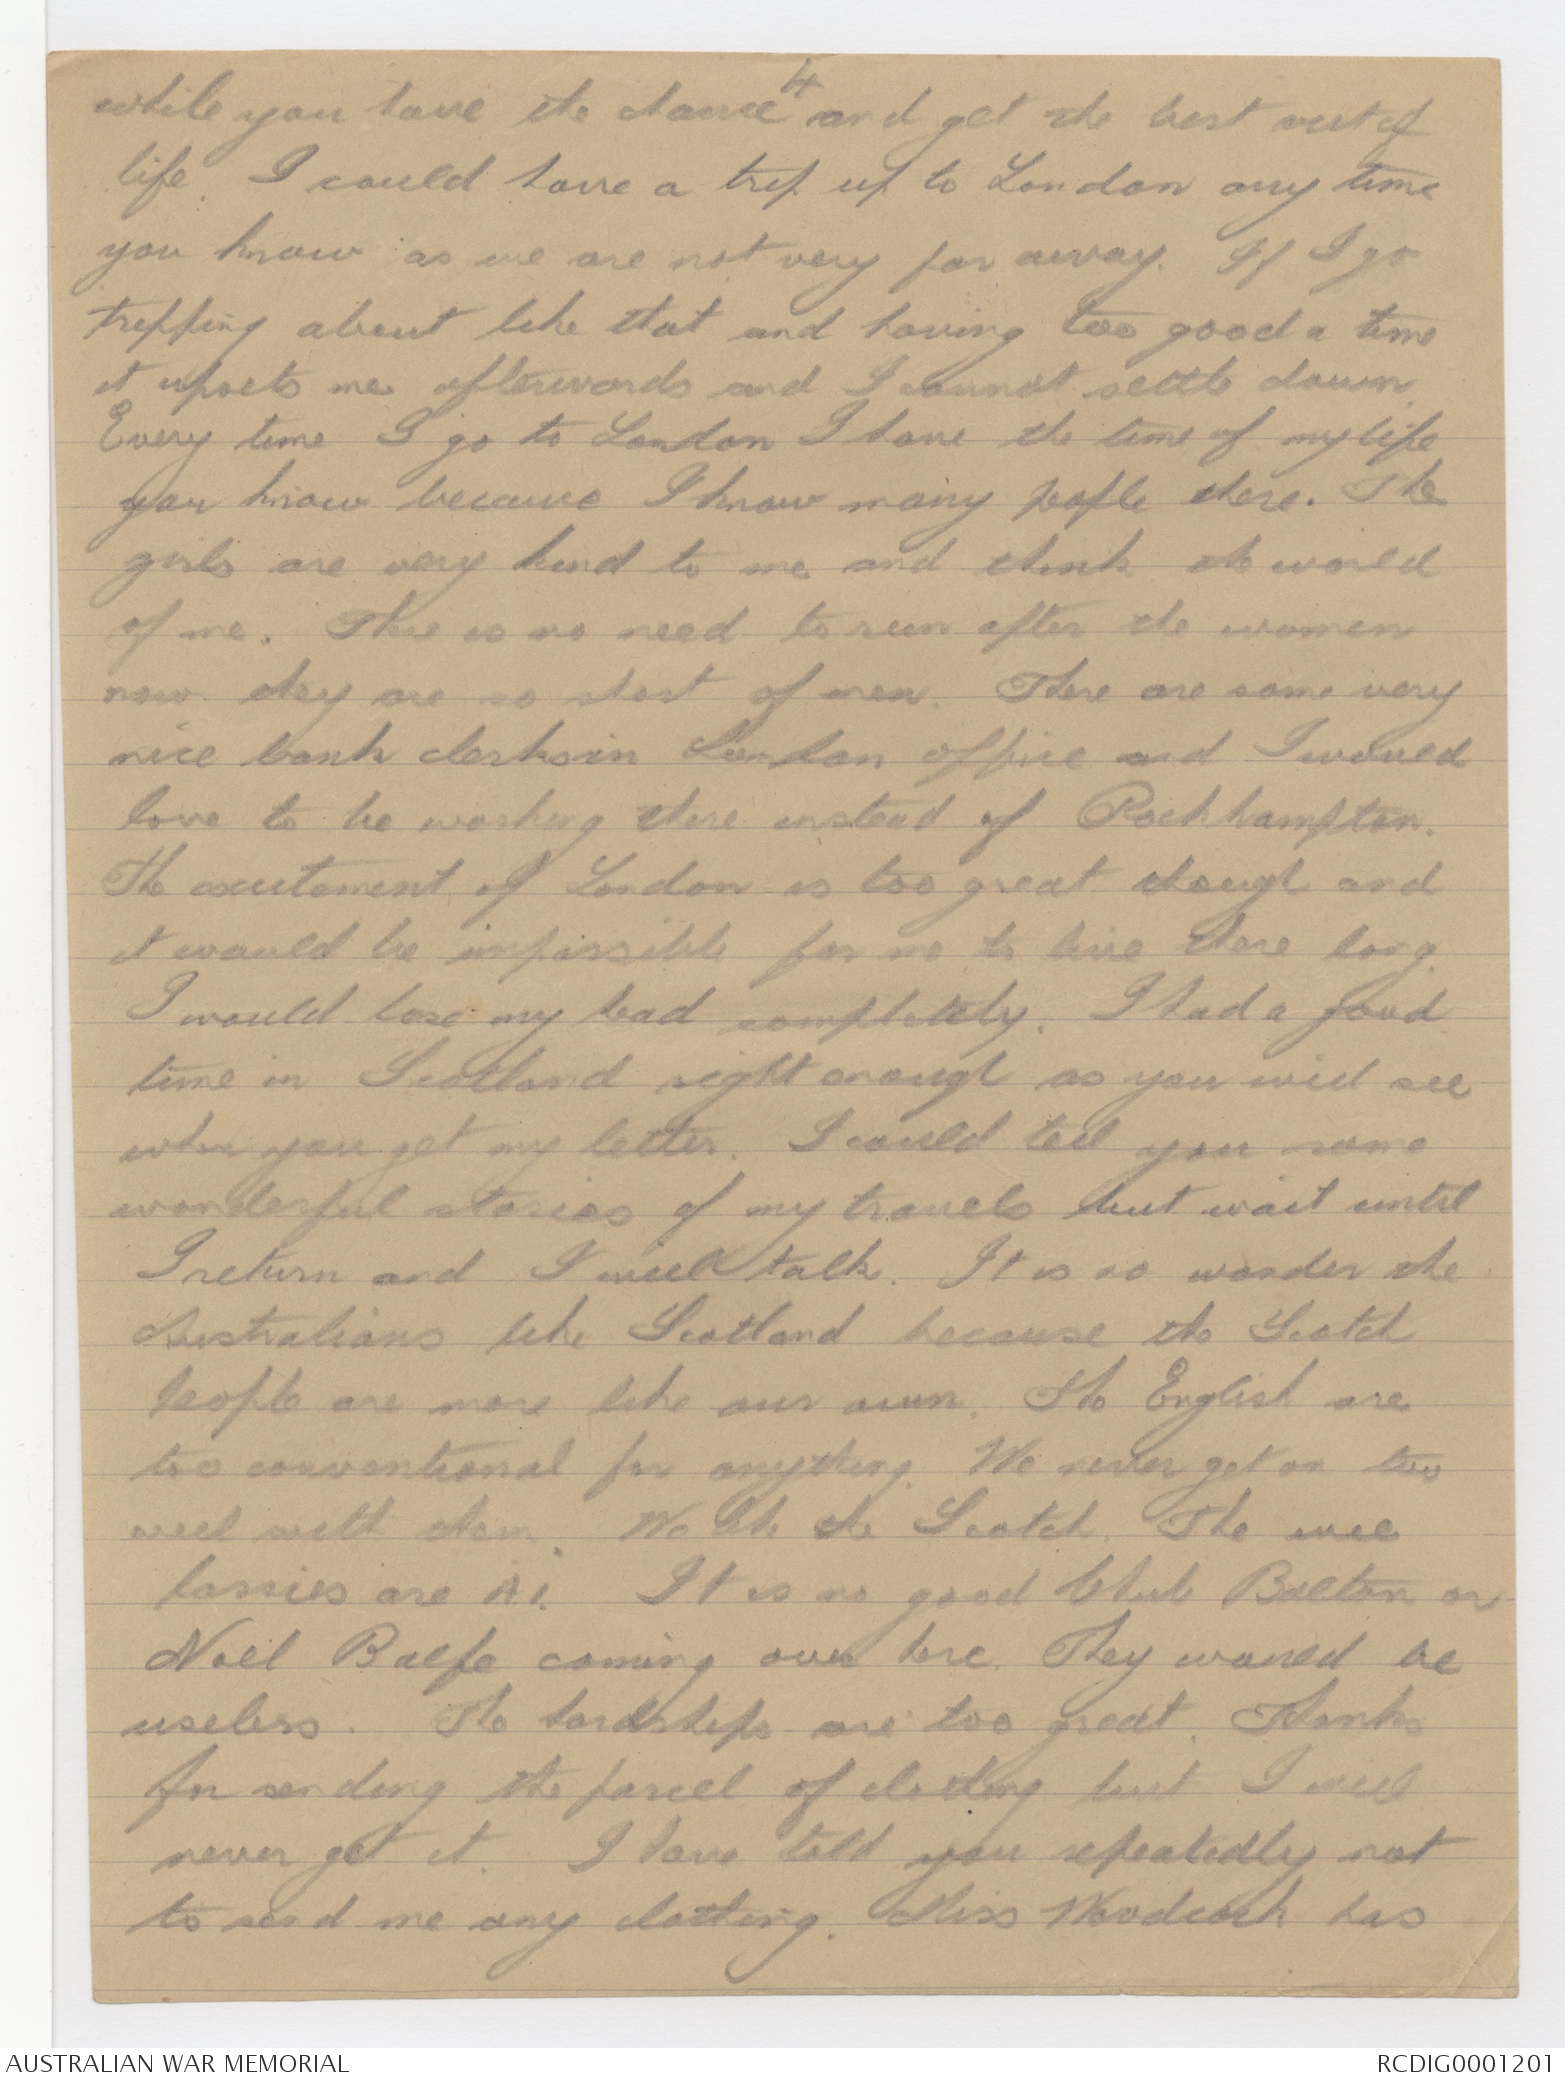 4
while you have the chance and get the best out of
life. I could have a trip up to London any time
you know as we are not very far away. If I go
tripping about like that and having too good a time
it upsets me afterwards and I cannot settle down.
Every time I go to London I have the time of my life
you know because I know many people there. The
girls are very kind to me and think the world
of me. There is no need to run after the women
now they are so short of men. There are some very
nice bank clerks in London office and I would
love to be working there instead of Rockhampton.
The excitement of London is too great though and
it would be impossible for me to live there long.
I would lose my head completely. I had a good
time in Scotland right enough as you will see
when you get my letter. I could tell you some
wonderful stories of my travels but wait until
I return and I will talk. It is no wonder the
Australians like Scotland because the Scotch
people are more like our own. The English are
too conventional for anything. We never get on too
well with them. We like the Scotch. The wee
lassies are A1. It is no good Bolton or
Noel Balfe coming over here. They would be
useless. The hardships are too great. Thanks
for sending the parcel of clothing but I will
never get it. I have told you repeatedly not
to send me any clothing. Miss Woodcock has
AUSTRALIAN WAR MEMORIAL
RCDIG0001201